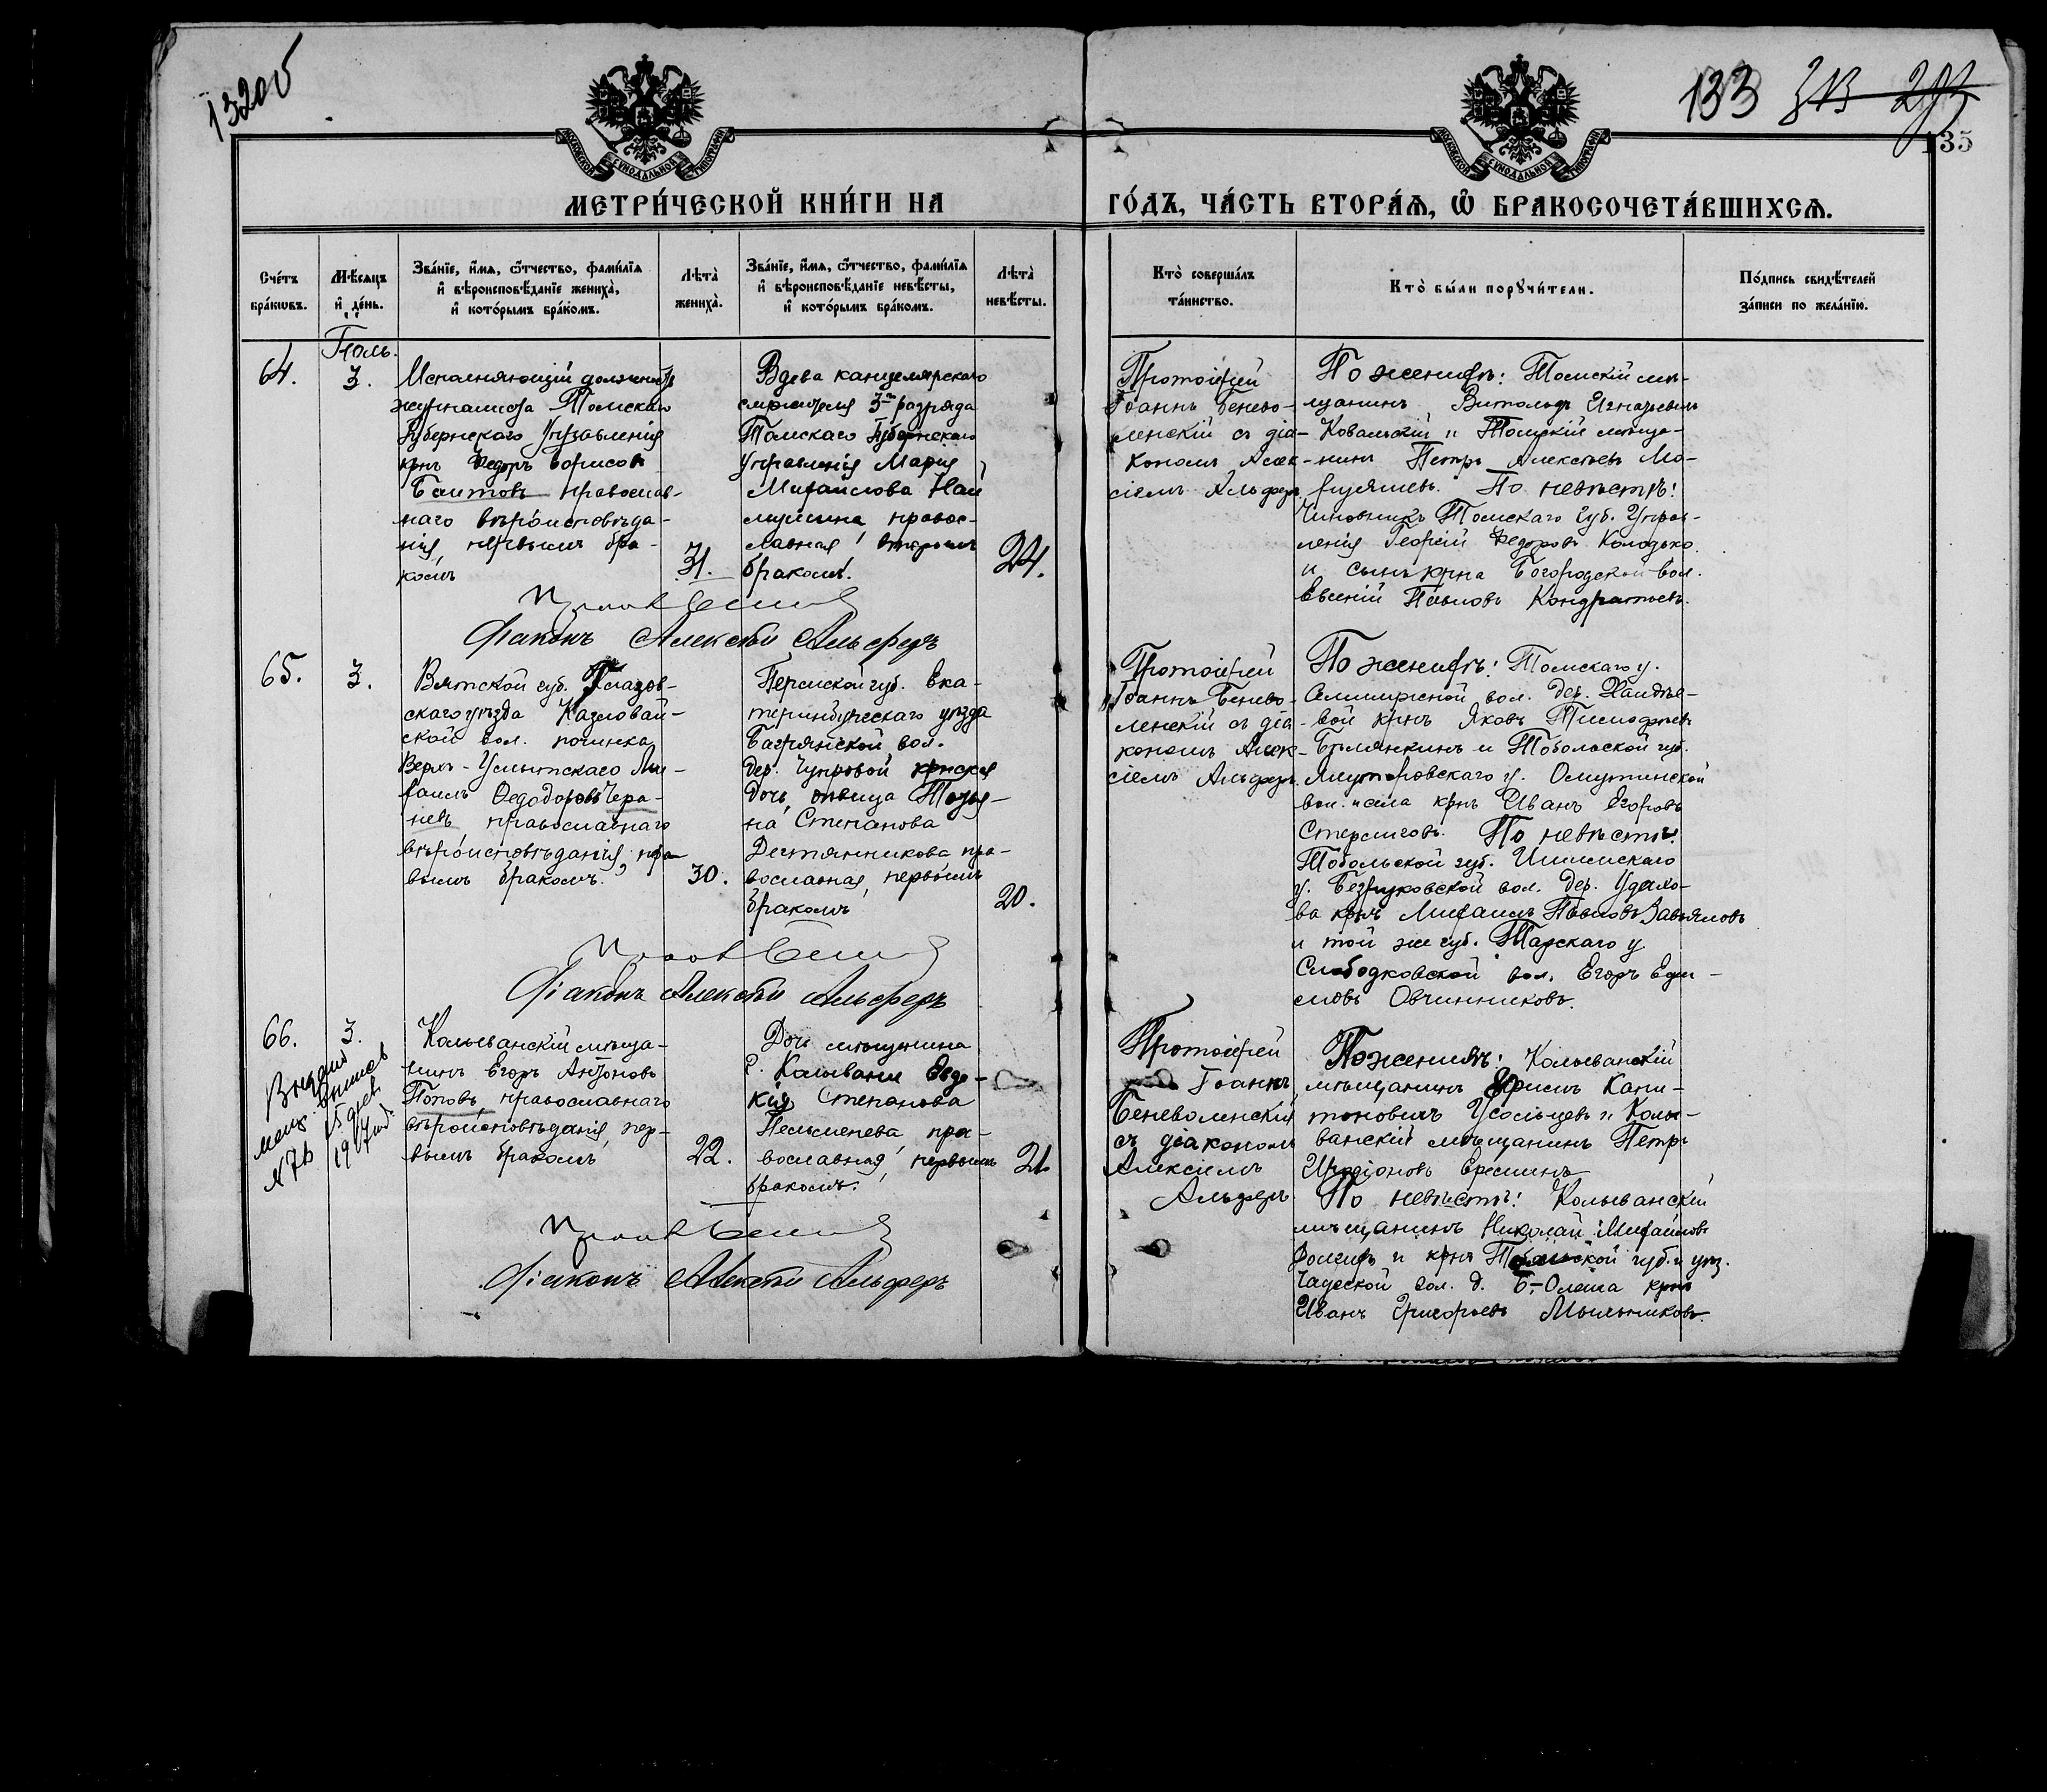 132об
133
135
МОСКОВСКОЙ СѴНОДАЛЬНОЙ ТИПОГРАФІИ
МОСКОВСКОЙ СѴНОДАЛЬНОЙ ТИПОГРАФІИ
МЕТРИ́ЧЕСКОЙ КНИ́ГИ НА
ГО́ДЪ, ЧА́СТЬ ВТОРА́Ѧ, Ѽ БРАКОСОЧЕТА́ВШИХСѦ.
Сче́тъ бра́кѡвъ.
Мѣ́сяцъ и де́нь.
Зва́нїе, и́мѧ, ѻ҆́тчество, фами́лїѧ
и вѣроисповѣ́данїе жениха̀,
и кото́рымъ бра́комъ.
Лѣта̀ жениха̀.
Зва́нїе, и́мѧ, ѻ҆́тчество, фами́лїѧ
и вѣроисповѣ́данїе невѣ́сты,
и кото́рымъ бра́комъ.
Лѣта̀ невѣ́сты.
Кто̀ соверша́лъ та́инство.
Кто̀ бы́ли порꙋчи́тели.
По́дпись свидѣ́телей за́писи по жела́нїю.
Іюль.
64.
3.
Исполняющій должность
журналиста Томскаго
Губернскаго Управленія
крнъ Федоръ Борисовъ
Баитовъ православ-
наго вѣроисповѣда-
нія, первымъ бра-
комъ
31.
Вдова канцелярскаго
служителя 3го разряда
Томскаго Губернскаго
Управленія Марія
Михаилова
православная, вторымъ
бракомъ.
24.
Протоіерей
Іоаннъ Бенево-
ленскій съ діа-
кономъ Алек-
сіемъ Альферъ
По женихѣ: Томскій мѣ-
щанинъ Витольдъ Игнатьевичъ
Ковальскій и Томскій мѣща-
нинъ Петръ Алексѣевъ
По невѣстѣ:
Чиновникъ Томскаго Губ. Управ-
ленія Георгій Федоровъ Колодько
и сынъ крна Богородской вол.
Евсеній Павловъ Кондратьевъ.
Діаконъ Алексѣй Альферъ
65.
3.
Вятской губ. Глазов-
скаго уѣзда
ской вол. починка
Верхъ-Услытскаго Ми-
хаилъ Ѳеодоровъ Чера-
невъ, православнаго
вѣроисповѣданія, пер-
вымъ бракомъ.
30.
Пермской губ. Ека-
теринбургскаго уѣзда
Багрянской вол.
дер. Чупровой крнская
дочь, дѣвица Татья-
на Степанова
Десятникова пра-
вославная, первымъ
бракомъ
20.
Протоіерей
Іоаннъ Бенево-
ленскій съ діа-
кономъ Алек-
сіемъ Альферъ
По женихѣ: Томскаго у.
вол. дер. Халдѣе-
вой крнъ Яковъ Тимофѣевъ
и Тобольской губ.
Ялуторовскаго у. Омутинской
вол. и села крнъ Иванъ Егоровъ
Стерлиговъ. По невѣстѣ:
Тобольской губ. Ишимскаго
у. Безруковской вол. дер. Удало-
ва крнъ Михаилъ Павловъ Завьяловъ
и той же губ. Тарскаго у
Слободковской вол. Егоръ Ефи-
мовъ Овчинниковъ.
Діаконъ Алексѣй Альферъ
66.
3.
Выдана
метр. выпись
№ 76 15 фев.
1917 год.
Колыванскій мѣща-
нинъ Егоръ Антоновъ
Поповъ, православнаго
вѣроисповѣданія, пер-
вымъ бракомъ
22.
Дочь мѣщанина
г. Колывани Евдо-
кія Степанова
Пельменева пра-
вославная, первымъ
бракомъ.
21
Протоіерей
Іоаннъ
Беневоленскій
съ діакономъ
Алексіемъ
Альферъ
По женихѣ: Колыванскій
мѣщанинъ Ефимъ Капи-
тоновичъ Усольцевъ и Колы-
ванскій мѣщанинъ Петръ
Иродіоновъ Ереминъ
По невѣстѣ: Колыванскій
мѣщанинъ Николай Михайловъ
и крнъ Тобольской губ. и уѣз.
вол. д. крнъ
Иванъ Григорьевъ Мыльниковъ.
Діаконъ Алексѣй Альферъ